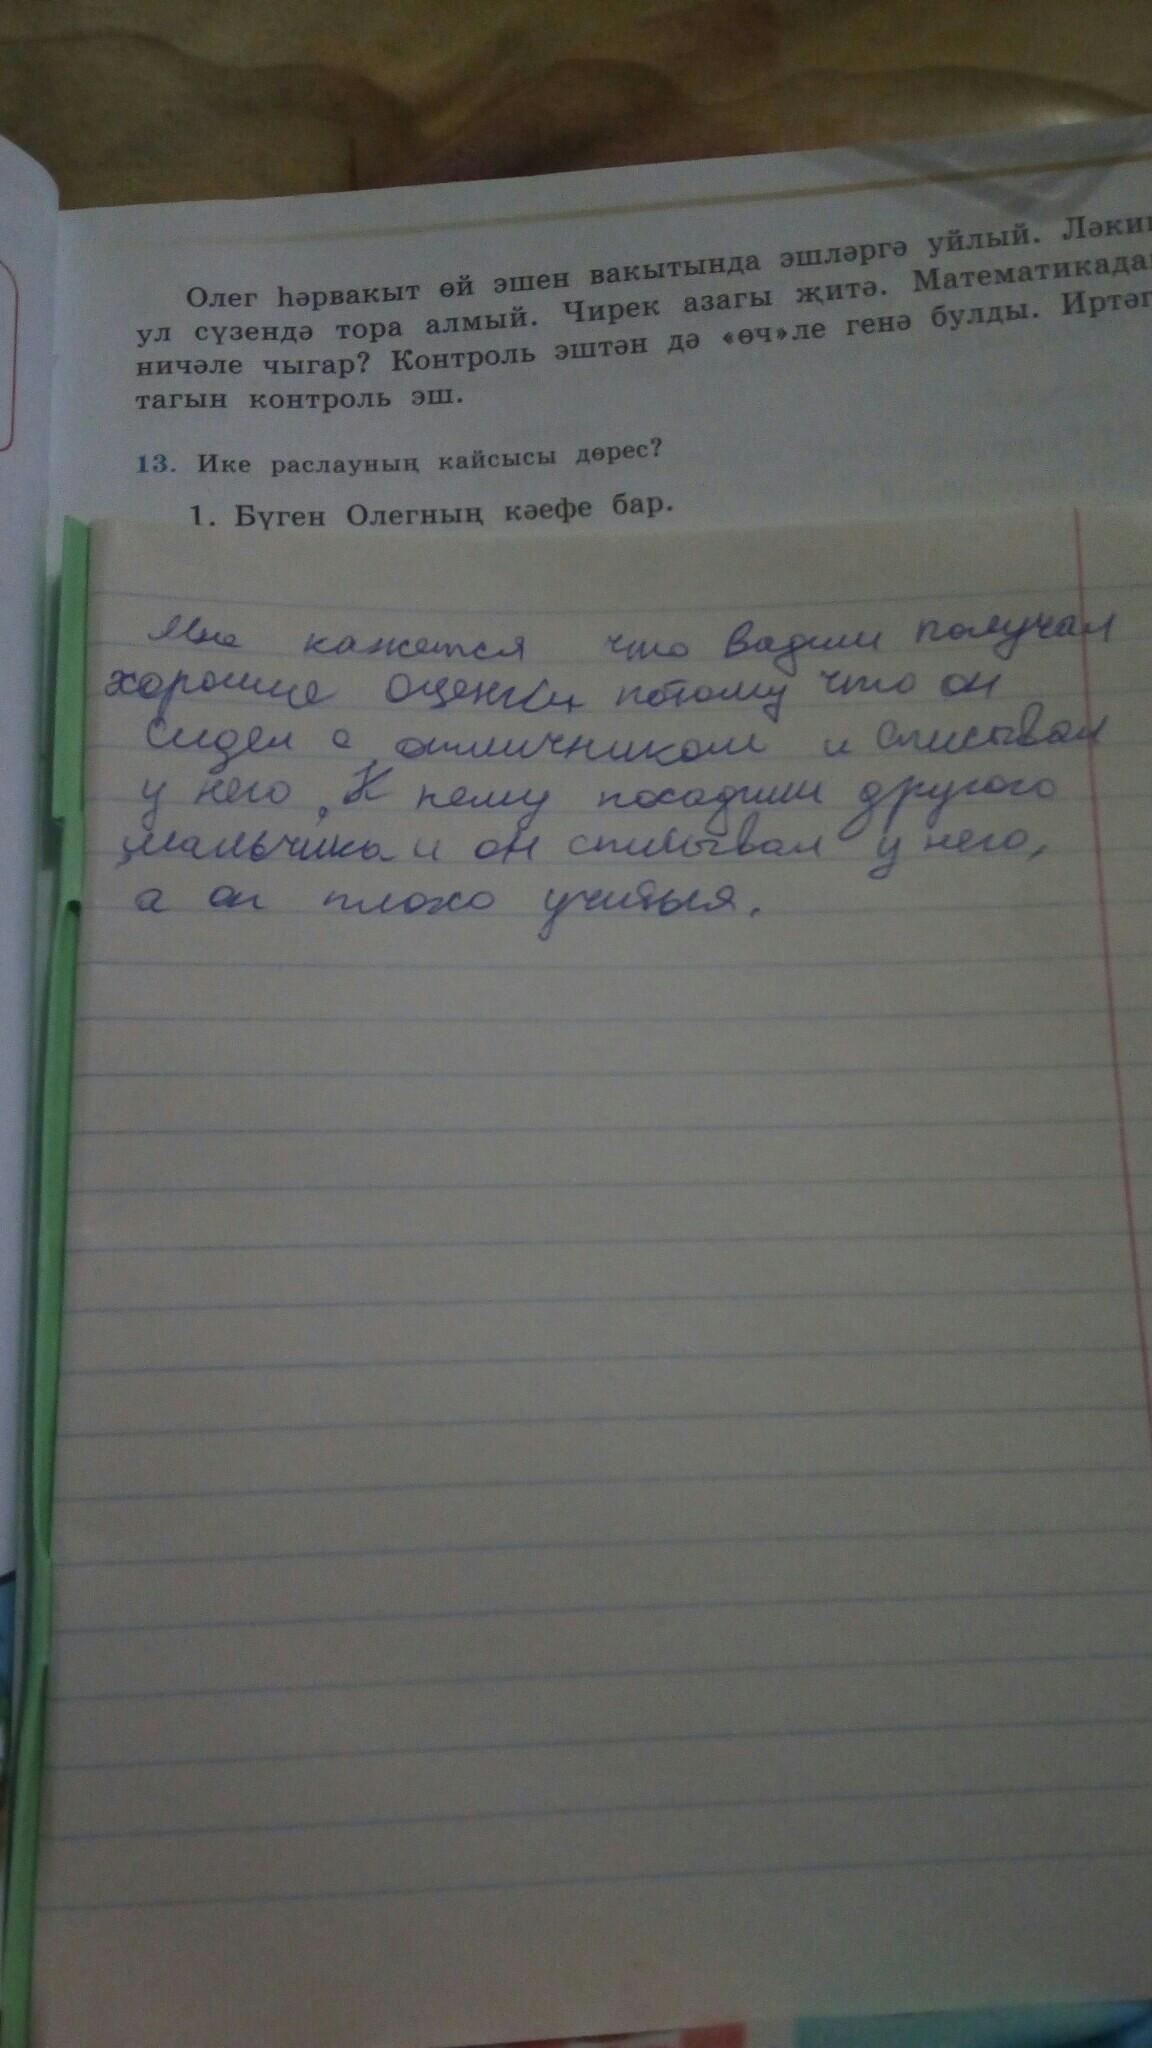 Олег һәрвакыт өй эшен вакытында эшләргә уйлый. Ләкин
ул сүзендә тора алмый. Чирек азагы җитә. Математикадан
ничәле чыгар? Контроль эштән дә «өч»ле генә булды. Иртәг
тагын контроль эш.
13. Ике раслауның кайсысы дөрес?
1. Бүген Олегның кәефе бар.
Мне кажется что Вадим получал
хорошие оценки потому что он
сидел с отличником и списывал
у него. К нему посадили другого
мальчика и он списывал у него,
а он плохо учится.